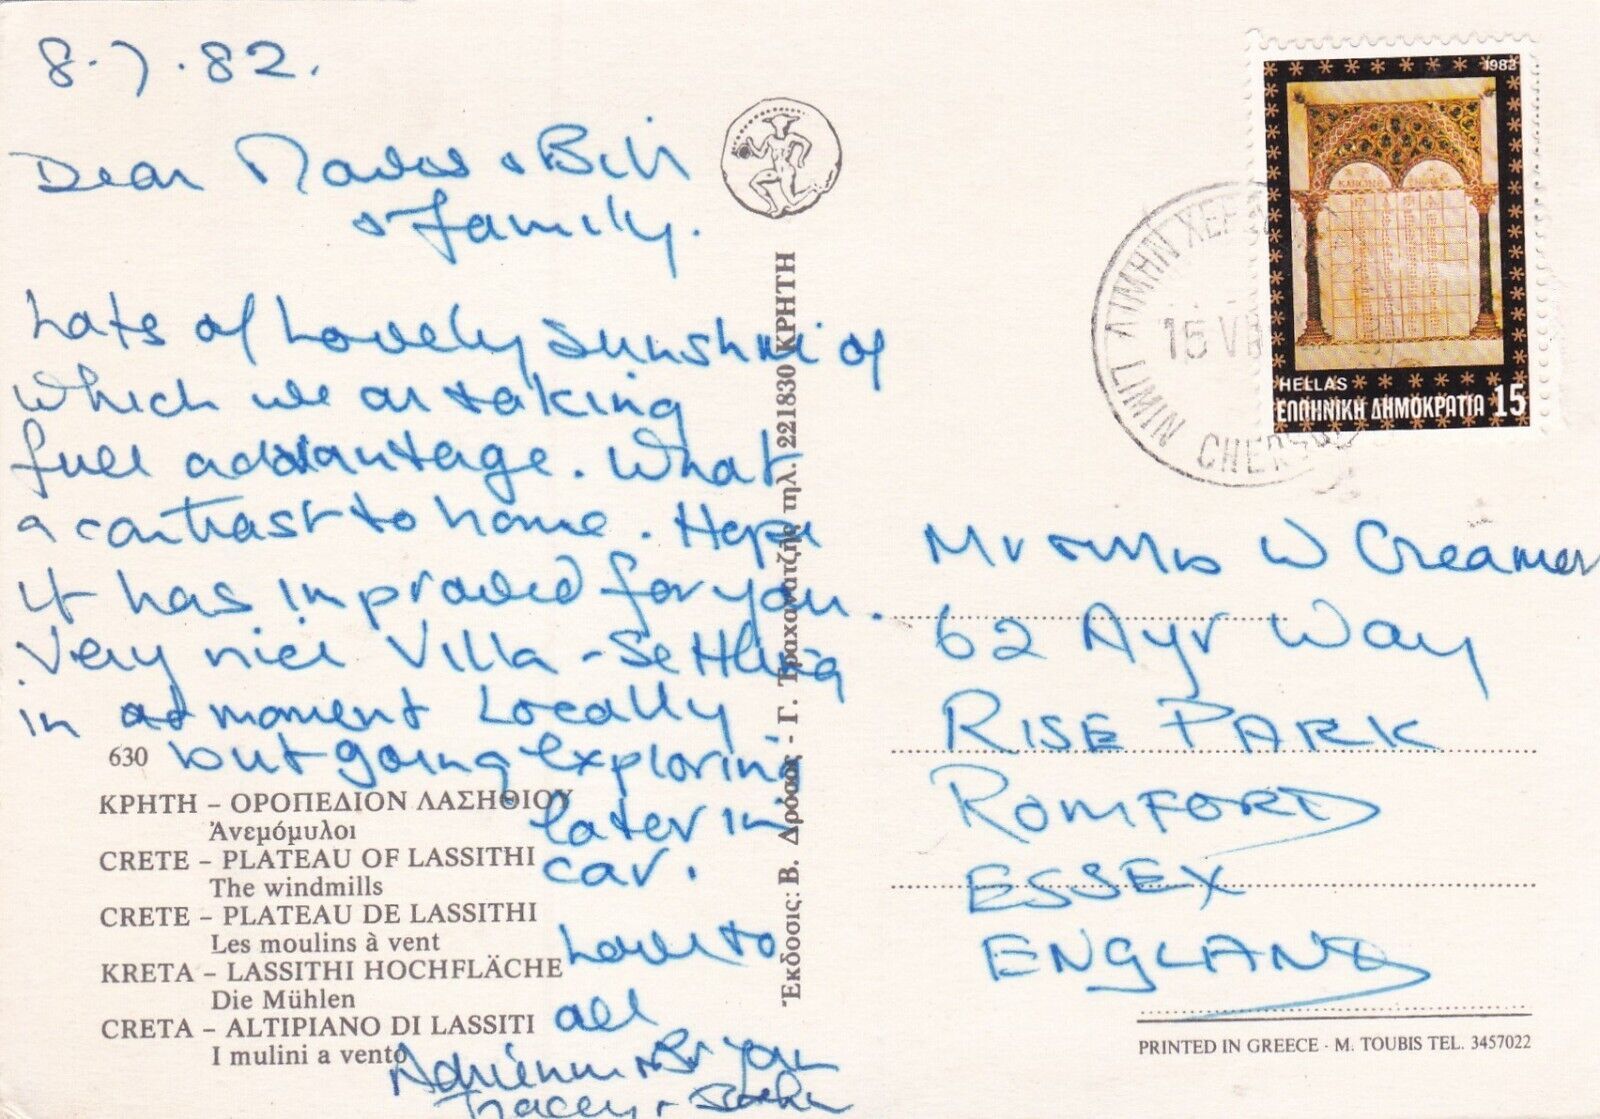 8.7.82.
Dear & Bill
& family.
Lots of Lovely Sunshine of
which we are taking
full advantage. What
a contrast to home. Hope
it has improved for you.
Very nice Villa - Settling
in at moment Locally
but going exploring
later in
car.
Love to
all
Adrienne & Bryan
Tracey &
630
ΚΡΗΤΗ – ΟΡΟΠΕΔΙΟΝ ΛΑΣΗΘΙΟΥ
Ἀνεμόμυλοι
CRETE – PLATEAU OF LASSITHI
The windmills
CRETE – PLATEAU DE LASSITHI
Les moulins à vent
KRETA – LASSITHI HOCHFLÄCHE
Die Mühlen
CRETA – ALTIPIANO DI LASSITI
I mulini a vento
Ἔκδοσις: Β. Δρόσος - Γ. Τραχανατζής τηλ. 221830 ΚΡΗΤΗ
1982
HELLAS
ΕΛΛΗΝΙΚΗ ΔΗΜΟΚΡΑΤΙΑ 15
ΛΙΜΗΝ ΧΕΡ
15 VII
LIMIN CHERSON
Mr & Mrs W Creamer
62 Ayr Way
RISE PARK
ROMFORD
ESSEX
ENGLAND
PRINTED IN GREECE · M. TOUBIS TEL. 3457022